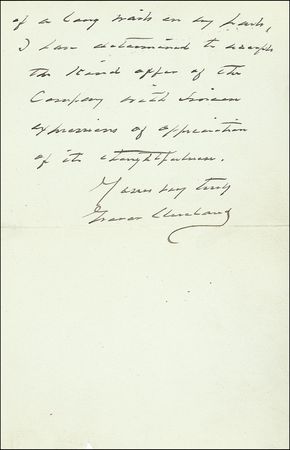 of a long wait on my part,
I have determined to accept
the kind offer of the
Company with sincere
expressions of appreciation
of its thoughtfulness.
Yours very truly
Grover Cleveland